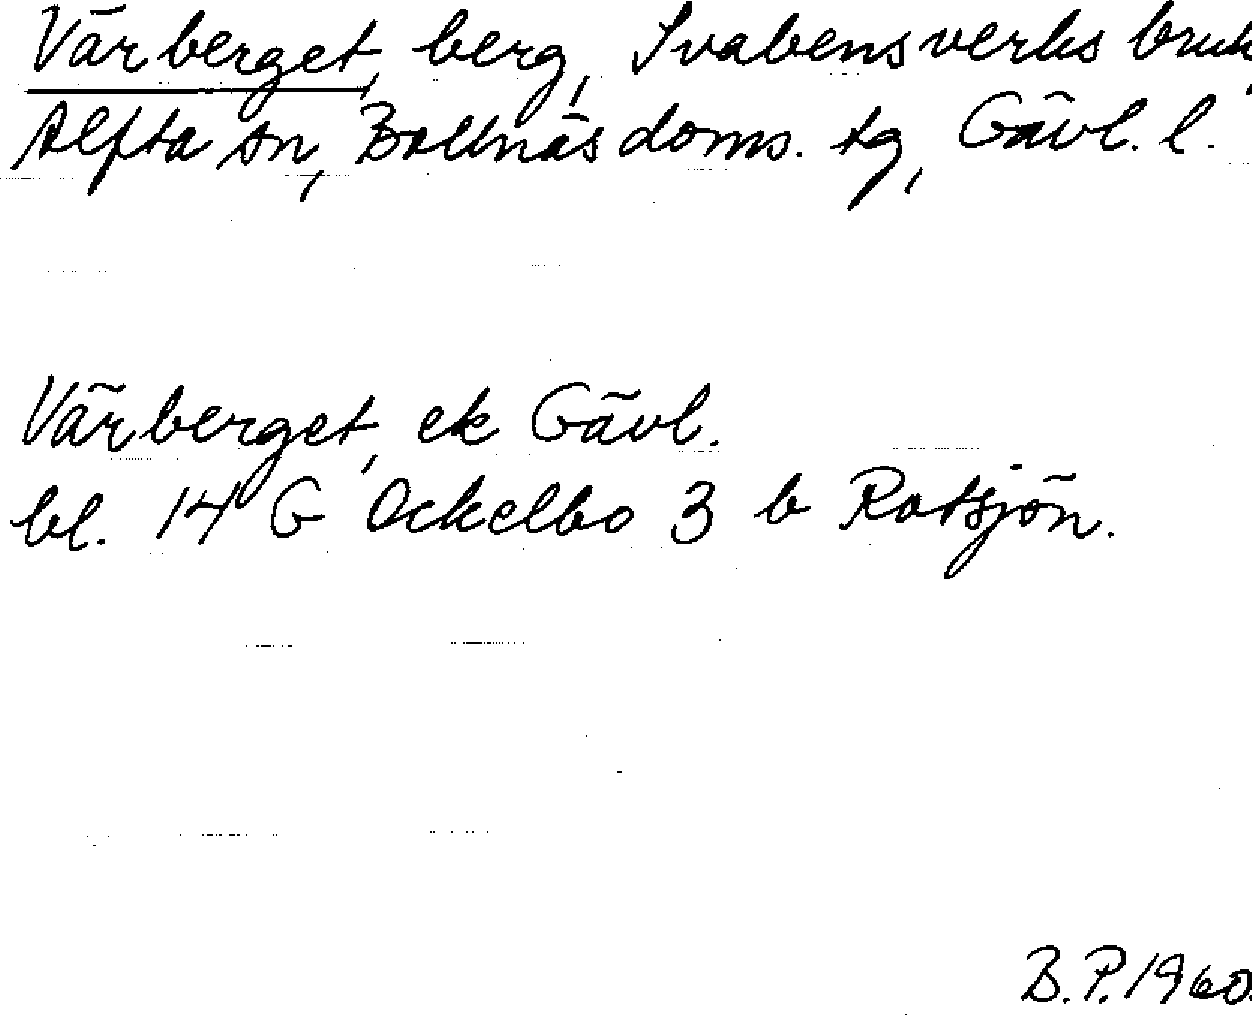 Värberget, berg, Svabensverks bruk,
Alfta sn, Bollnäs doms. tg, Gävl. l.
Värberget, ek Gävl.
bl. 14 G Ockelbo 3 b Rotsjön.
B.P. 1960.